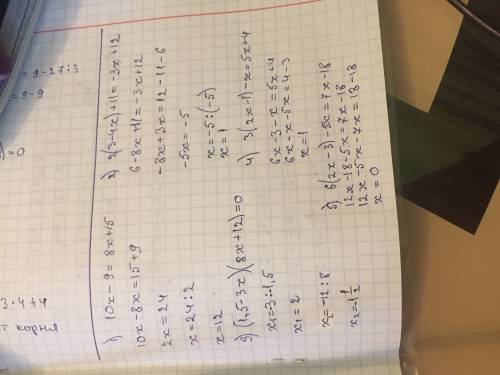 = 9-27:3
= 9-9
=0
3·4+4
т корня
1) 10x-9=8x+15
10x-8x=15+9
2x=24
x=24:2
x=12
2) 2(3-4x)+11=-3x+12
6-8x+11=-3x+12
-8x+3x=12-11-6
-5x=-5
x=-5:(-5)
x=1
3) (1,5-3x)(8x+12)=0
x₁=3:-1,5
x₁=2
x₂=-12:8
x₂=-1 1/2
4) 3(2x-1)-x=5x+4
6x-3-x=5x+4
6x-x-5x=4-3
x=1
5) 6(2x-3)-5x=7x-18
12x-18-5x=7x-18
12x-5x-7x=18-18
x=0